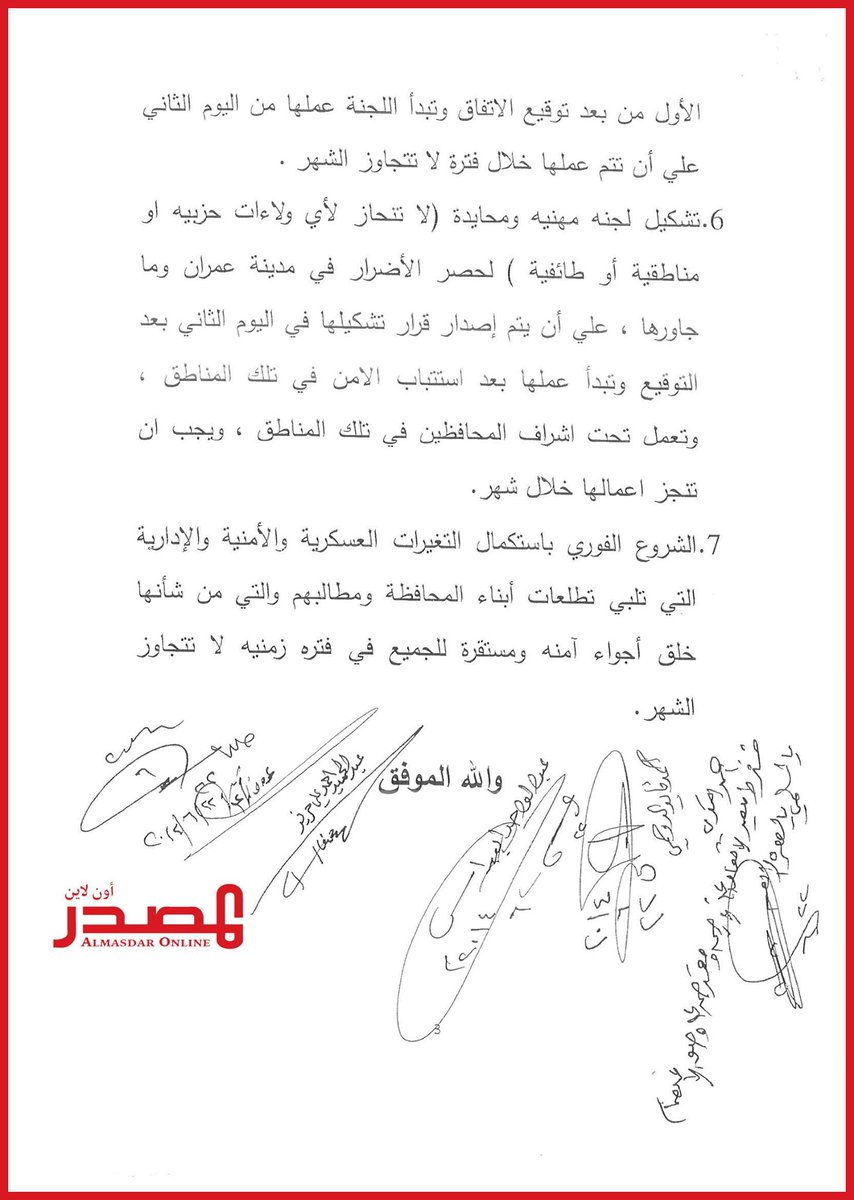 الأول من بعد توقيع الاتفاق وتبدأ اللجنة عملها من اليوم الثاني
علي أن تتم عملها خلال فترة لا تتجاوز الشهر .
6.تشكيل لجنه مهنيه ومحايدة (لا تنحاز لأي ولاءات حزبيه او
مناطقية أو طائفية ) لحصر الأضرار في مدينة عمران وما
جاورها ، علي أن يتم إصدار قرار تشكيلها في اليوم الثاني بعد
التوقيع وتبدأ عملها بعد استتباب الامن في تلك المناطق ،
وتعمل تحت اشراف المحافظين في تلك المناطق ، ويجب ان
تنجز اعمالها خلال شهر.
7.الشروع الفوري باستكمال التغيرات العسكرية والأمنية والإدارية
التي تلبي تطلعات أبناء المحافظة ومطالبهم والتي من شأنها
خلق أجواء آمنه ومستقرة للجميع في فتره زمنيه لا تتجاوز
الشهر.
والله الموفق
أون لاين
المصدر
ALMASDAR ONLINE